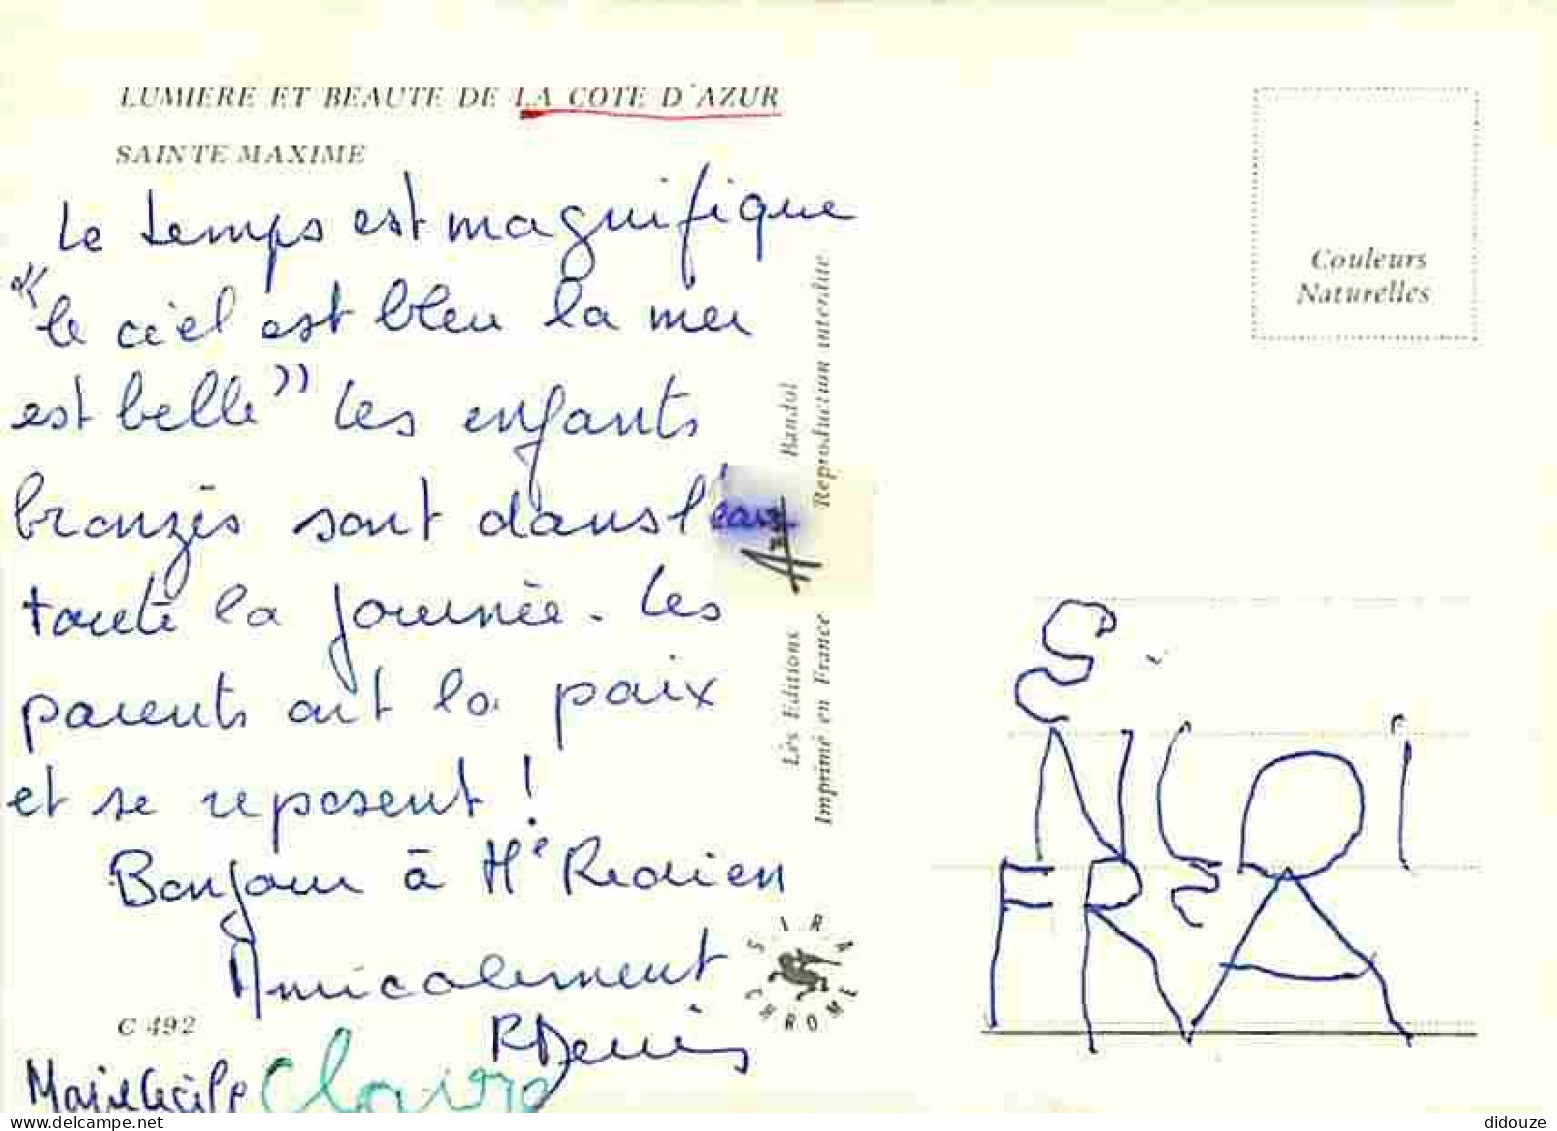 LUMIERE ET BEAUTE DE LA COTE D'AZUR
SAINTE MAXIME
Le temps est magnifique
"le ciel est bleu la mer
est belle" Les enfants
bronzés sont dans l'eau
toute la journée. Les
parents ont la paix
et se reposent !
Bonjour à Me
Amicalement
RDenis
Marie Cécile Claire
C 492
Les Editions Bandol
Imprimé en France Reproduction interdite
SIRA
CHROME
Couleurs
Naturelles
didouze